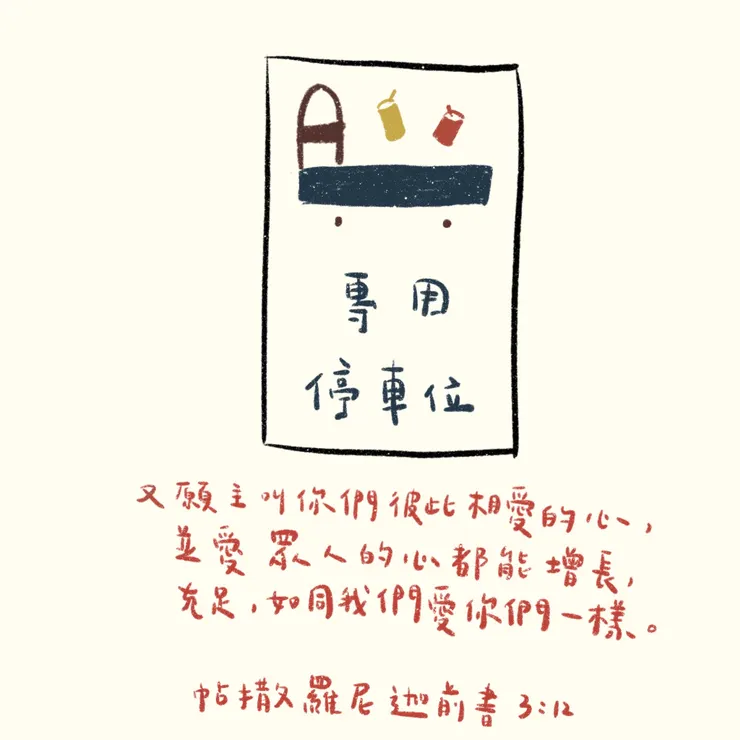 專用
停車位
又願主叫你們彼此相愛的心,
並愛眾人的心都能增長,
充足,如同我們愛你們一樣。
帖撒羅尼迦前書 3:12